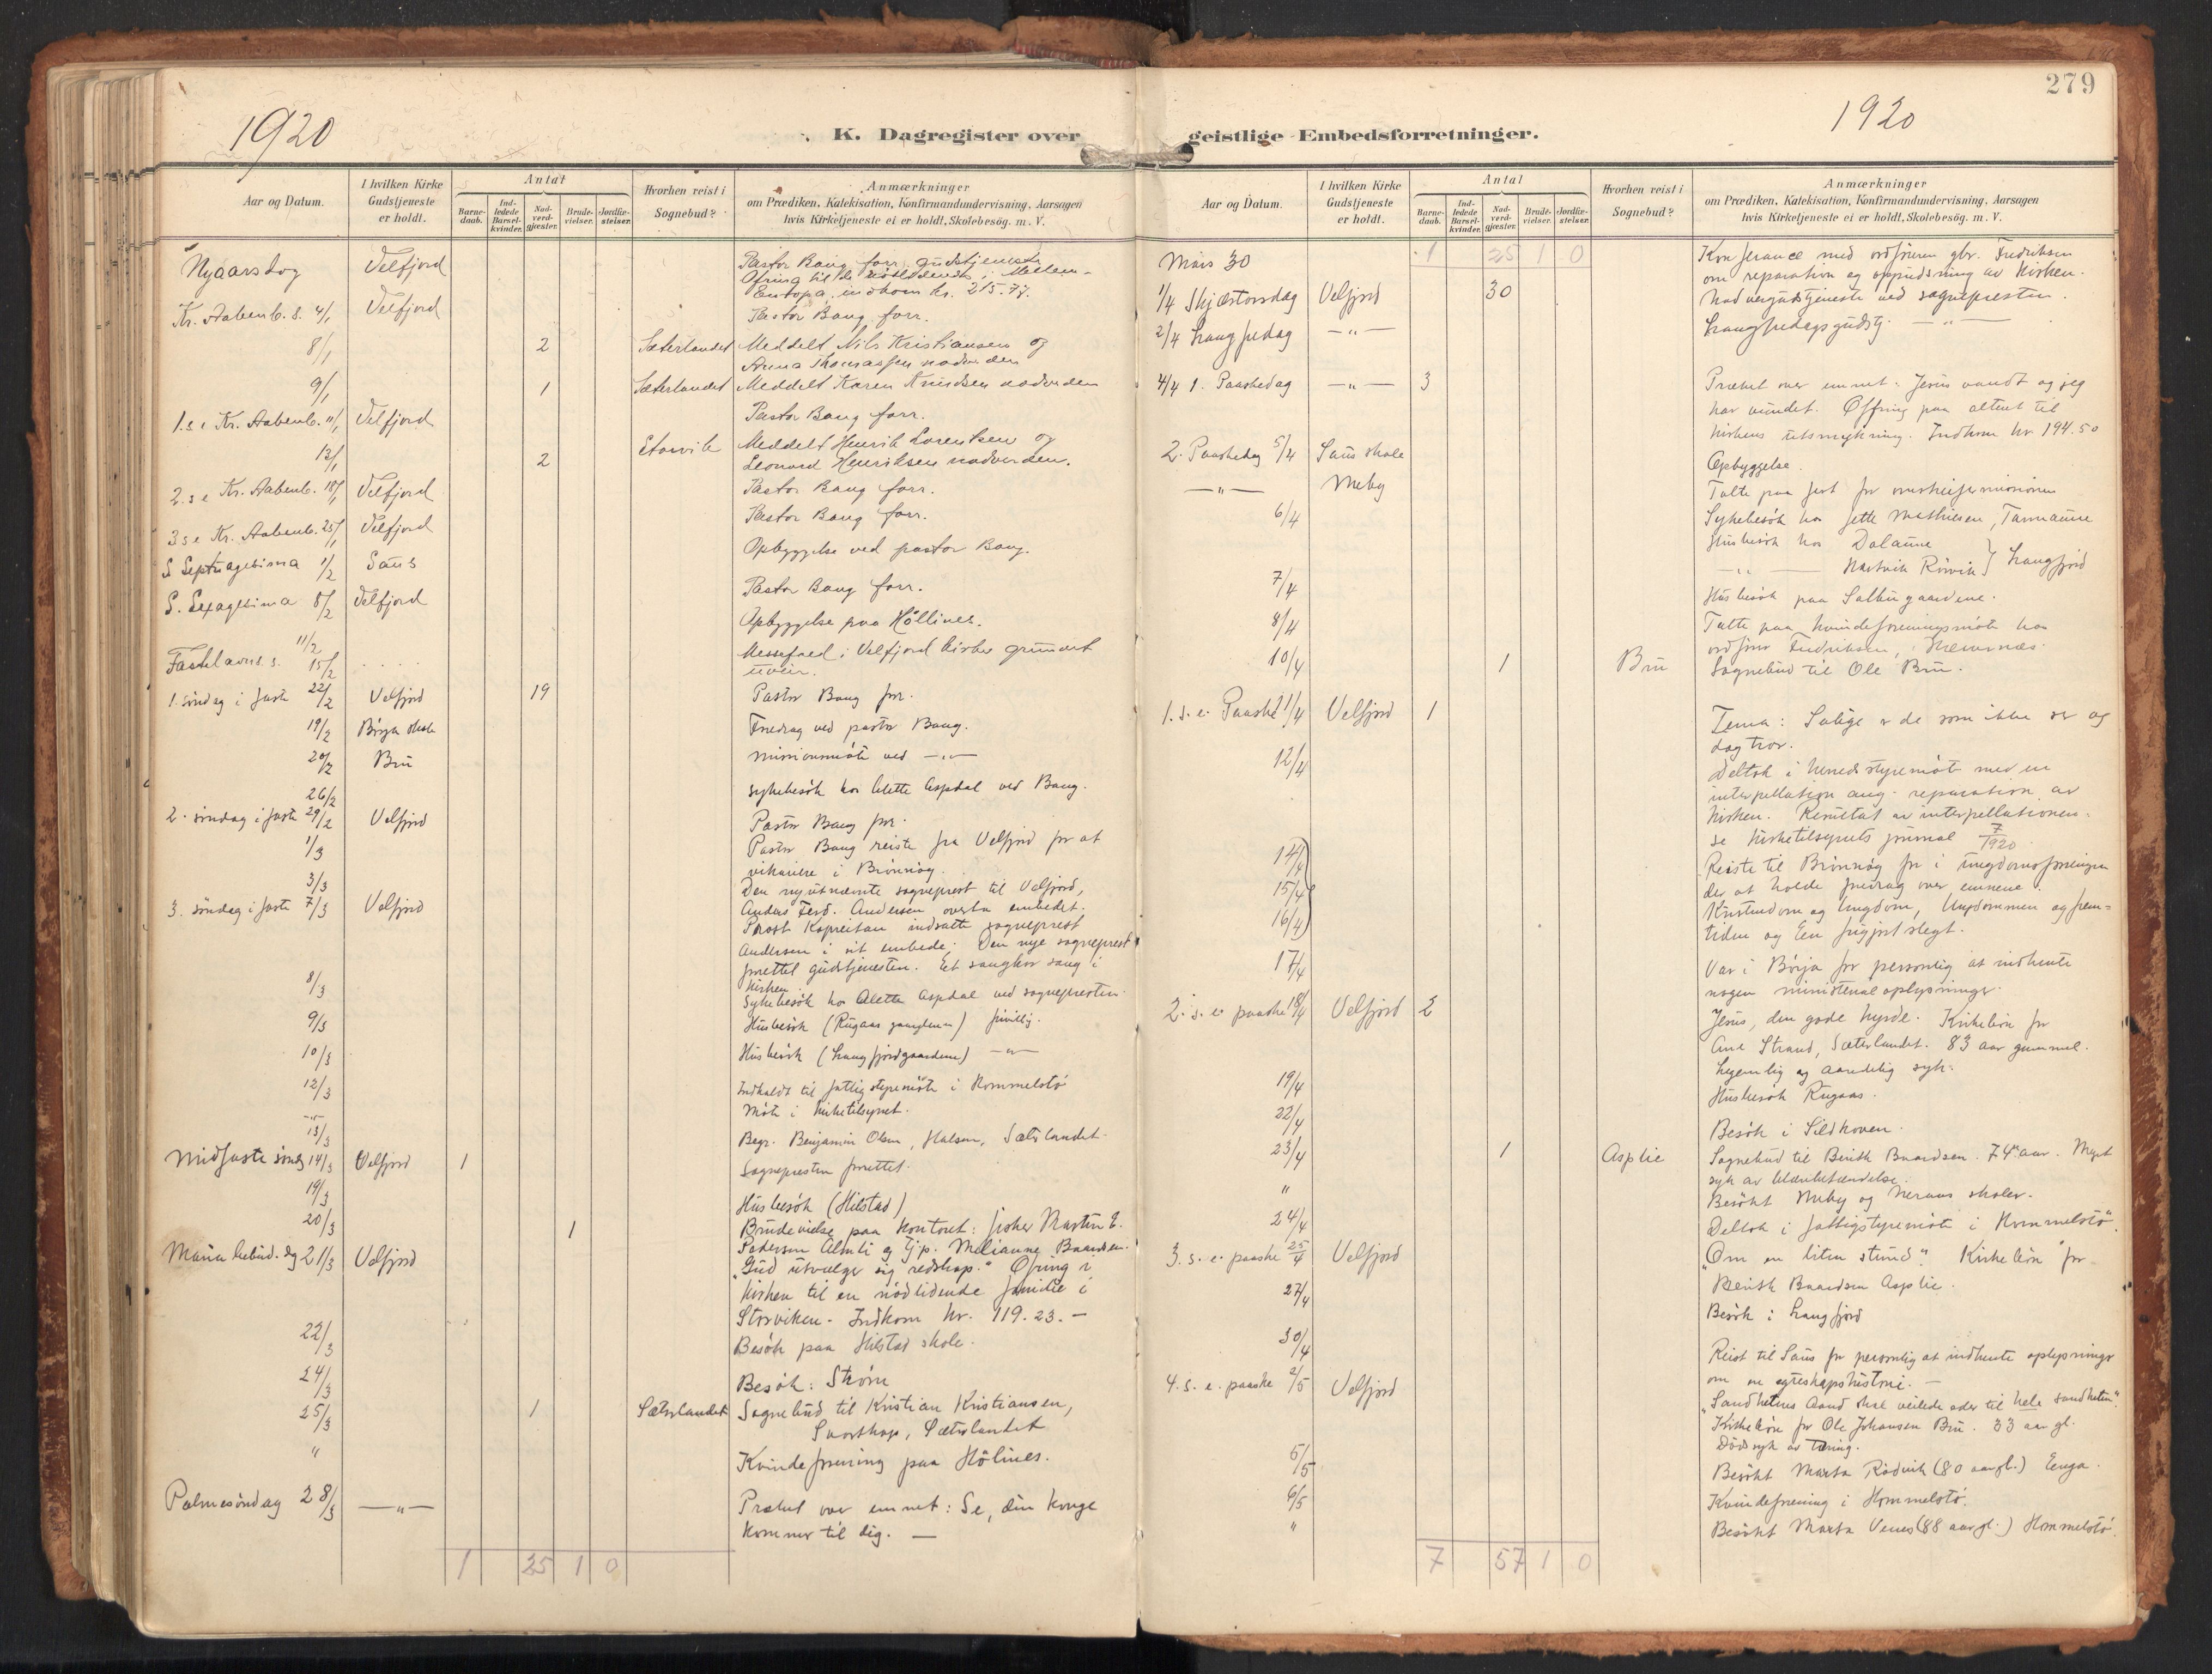 279
1920
1920
K. Dagregister over
geistlige Embedsforretninger.
Aar og Datum.
I hvilken Kirke Gudstjeneste er holdt.
Antal
Barnedaab.
Indledede Barselkvinder.
Nadverdgjæster.
Brudevielser.
Jordfæstelser.
Hvorhen reist i Sognebud?
Anmærkninger
om Prædiken, Katekisation, Konfirmandundervisning, Aarsagen
hvis Kirketjeneste ei er holdt, Skolebesøg. m. V.
Nyaarsdag Velfjord Pastor Bang forr. gudstjeneste
Ofring til de nödlidende i Mellem-
Europa, indkom kr. 215.77.
Kr. Aabenb. s. 4/1 Velfjord Pastor Bang forr.
8/1 2 Sæterlandet Meddelt Nils Kristiansen og
Anna Thomassen nadverden
9/1 1 Sæterlandet Meddelt Karen Knudsen nadverden
1. s. e Kr. Aabenb. 11/1 Velfjord Pastor Bang forr.
13/1 2 Storvik Meddelt Henrik Lorentsen og
Leonard Henriksen nadverden.
2. s e Kr. Aabenb. 18/1 Velfjord Pastor Bang forr.
3 s e Kr. Aabenb. 25/1 Velfjord Pastor Bang forr.
S Septuagesima 1/2 Saus Opbyggelse ved pastor Bang.
S. Sexagesima 8/2 Velfjord Pastor Bang forr.
11/2 Opbyggelse paa Höllines.
Fastelavns s. 15/2 Messefald i Velfjord kirke grunnet
uveir.
1. söndag i faste 22/2 Velfjord 19 Pastor Bang forr.
19/2 Börja skole Foredrag ved pastor Bang.
20/2 Bru missionsmöte ved —"—
26/2 sykebesök hos Alette Aspdal ved Bang.
2. söndag i faste 29/2 Velfjord Pastor Bang forr.
1/3 Pastor Bang reiste fra Velfjord for at
vikariere i Brönnög.
3/3 Den nyutnævnte sogneprest til Velfjord,
Anders Ferd. Andersen overtar embedet.
3. söndag i faste 7/3 Velfjord Prost Kopreitan indsatte sogneprest
Andersen i sit embede. Den nye sogneprest
forrettet gudstjenesten. Et sangkor sang i
kirken.
8/3 Sykebesök hos Alette Aspdal ved sognepresten.
9/3 Husbesök (Rugaas gaardene) frivillig.
10/3 Husbesök (Langfjordgaardene) —"—
12/3 Indkaldt til fattigstyremöte i Hommelstö
—"— Möte i kirketilsynet.
13/3 Begr. Benjamin Olsen, Halsen, Sæterlandet.
Midfaste sönd. 14/3 Velfjord 1 Sognepresten forrettet.
19/3 Husbesök (Hilstad)
20/3 1 Brudevielse paa kontoret: fisker Martin E.
Pedersen Almli og Pip. Milianne Baardsen.
Maria bebud. dg 21/3 Velfjord „Gud utvælger sig redskap." Ofring i
kirken til en nödlidende familie i
Storviken. Indkom kr. 119.23.—
22/3 Besök paa Hilstad skole.
24/3 Besök: Ström
25/3 1 Sæterlandet Sognebud til Kristian Kristiansen,
Svartkop, Sæterlandet
" Kvindeforening paa Hölines.
Palmesöndag 28/3 —"— Præket over emnet: Se, din konge
kommer til dig. —
1 25 1 0
Aar og Datum.
I hvilken Kirke Gudstjeneste er holdt.
Antal
Barnedaab.
Indledede Barselkvinder.
Nadverdgjæster.
Brudevielser.
Jordfæstelser.
Hvorhen reist i Sognebud?
Anmærkninger
om Prædiken, Katekisation, Konfirmandundervisning, Aarsagen
hvis Kirketjeneste ei er holdt, Skolebesøg. m. V.
1 25 1 0
Mars 30 Konferance med ordföreren gbr. Fredriksen
om reparation og oppudsning av kirken.
1/4 Skjærtorsdag Velfjord 30 Nadvergudstjeneste ved sognepresten.
2/4 Langfredag —"— Langfredagsgudstj. —"—
4/4 1. Paaskedag —"— 3 Præket over emnet: Jesus vandt og jeg
har vundet. Offring paa alteret til
kirkens utsmykning. Indkom kr 194.50
2. Paaskedag 5/4 Saus skole Opbyggelse.
—"— Meby Talte paa fest for
6/4 Sykebesök hos Jette Mathisen, Tarmaune
Husbesök hos Dalaune
—"— Hartvik Rörvik } Langfjord
7/4 Husbesök paa Salbugaardene.
8/4 Talte paa kvindeforeningsmöte hos
ordförer Fredriksen, Hæmnæs.
10/4 1 Bru Sognebud til Ole Bru.
1. s. e. Paaske 11/4 Velfjord 1 Tema: Salige er de som ikke ser og
dog tror.
12/4 Deltok i herredsstyremöte med en
interpellation ang. reparation av
kirken. Resultat av interpellationen:
se kirketilsynets journal 7/1920
14/4 Reiste til Brönnög for i ungdomsforeningen
15/4 der at holde foredrag over emnene:
16/4 Kristendom og Ungdom, Ungdommen og frem-
tiden og En frigjort slegt.
17/4 Var i Börja for personlig at indhente
nogen ministerialoplysninger.
2. s. e. paaske 18/4 Velfjord 2 Jesus, den gode hyrde. Kirkebön for
Ane Strand, Sæterlandet. 83 aar gammel.
Legemlig og aandelig syk.
19/4 Husbesök Rugaas.
22/4 Besök i Sildhoven.
23/4 1 Asplie Sognebud til Berith Baardsen. 74 aar. Meget
syk av blærebetændelse.
" Besökt Meby og Neraas skoler.
24/4 Deltok i fattigstyremöte i Hommelstö.
3. s. e. paaske 25/4 Velfjord „Om en liten stund". Kirkebön for
Berith Baardsen Asplie.
27/4 Besök i Langfjord
30/4 Reist til Saus for personlig at indhente oplysninger
om en egteskapshistorie. —
4. s. e. paaske 2/5 Velfjord „Sandhetens Aand skal veilede eder til hele sandheten".
Kirkebön for Ole Johansen Bru. 33 aar gl.
Dödssyk av tæring.
5/5 Besökt Marta Rödvik (80 aar gl.) Eenga.
6/5 Kvindeforening i Hommelstö.
" Besökt Marta Venes (88 aar gl.) Hommelstö.
7 57 1 0